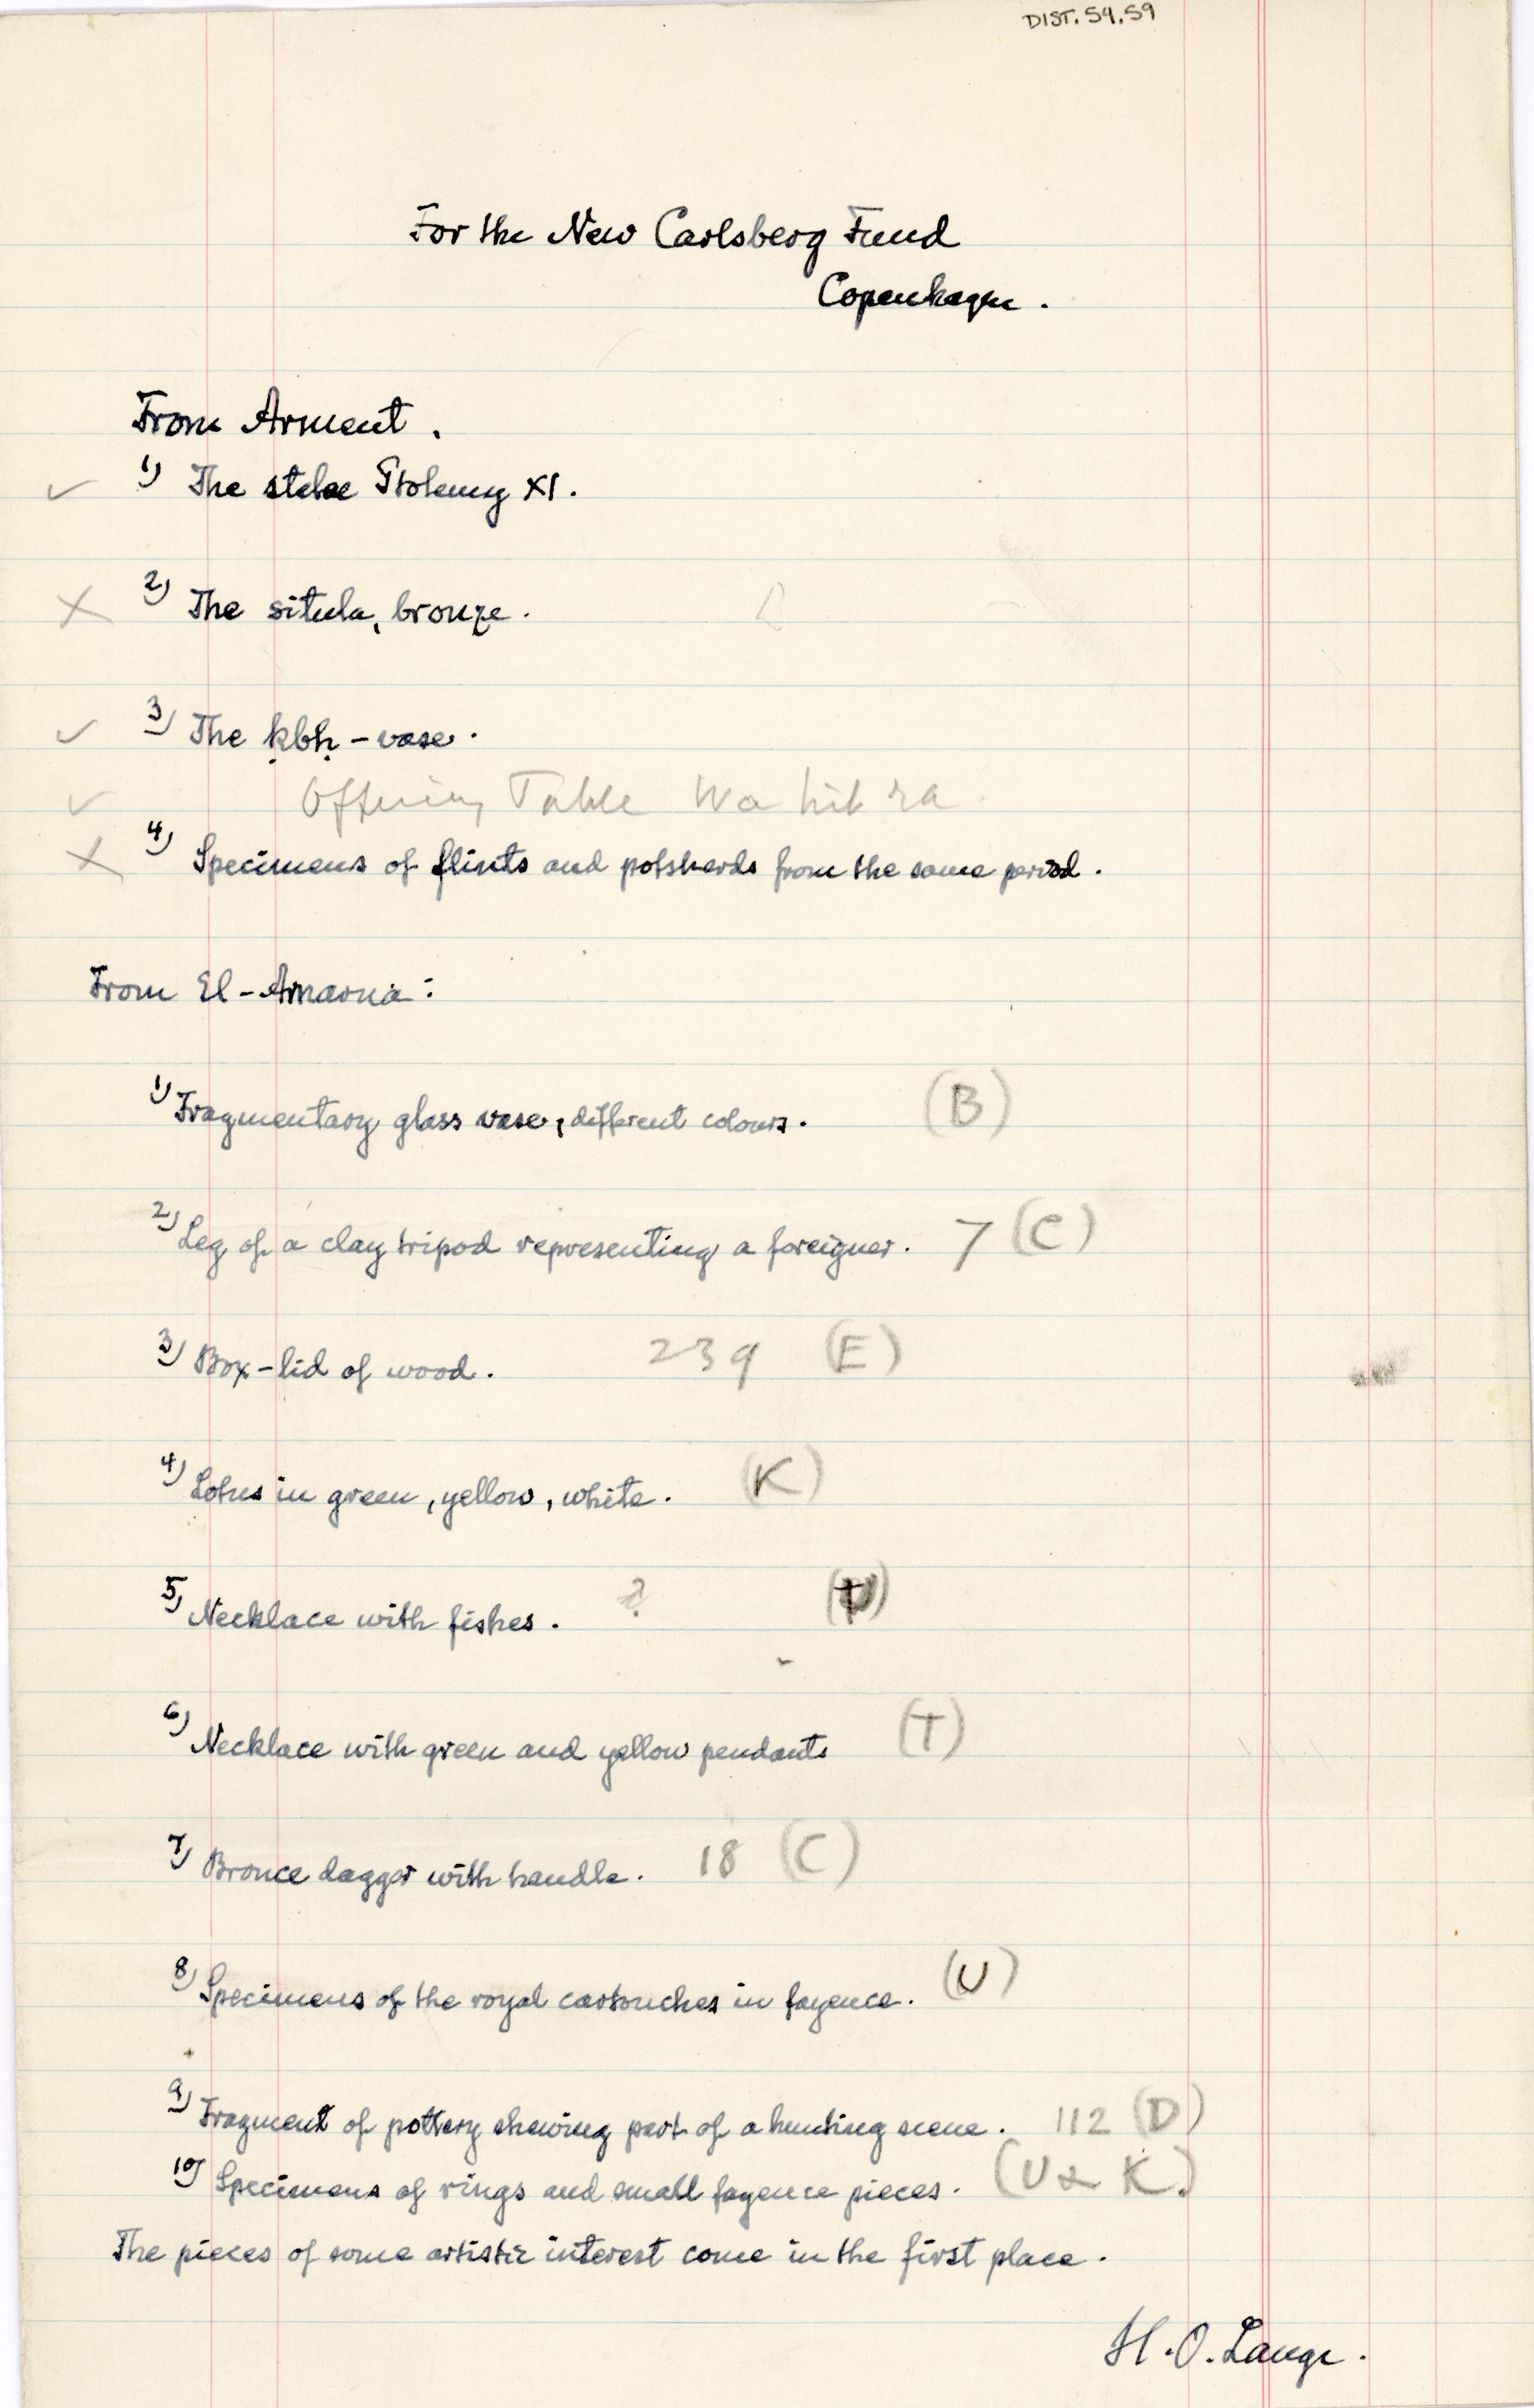 DIST. 54.59
For the New Carlsberg Fund
Copenhagen.
From Arment.
✓ 1) The stelae Ptolemy XI.
X 2) The situla, bronze.
✓ 3) The ḳbḥ-vase.
✓ Offering Table Wahibra
X 4) Specimens of flints and potsherds from the same period.
From El-Amarna:
1) Fragmentary glass vase, different colours. (B)
2) Leg of a clay tripod representing a foreigner. 7 (C)
3) Box-lid of wood. 239 (E)
4) Lotus in green, yellow, white. (K)
5) Necklace with fishes. ?
6) Necklace with green and yellow pendants (T)
7) Bronce dagger with handle. 18 (C)
8) Specimens of the royal cartouches in fayence. (U)
9) Fragment of pottery shewing part of a hunting scene. 112 (D)
10) Specimens of rings and small fayence pieces. (U & K)
The pieces of some artistic interest come in the first place.
H.O. Lange.